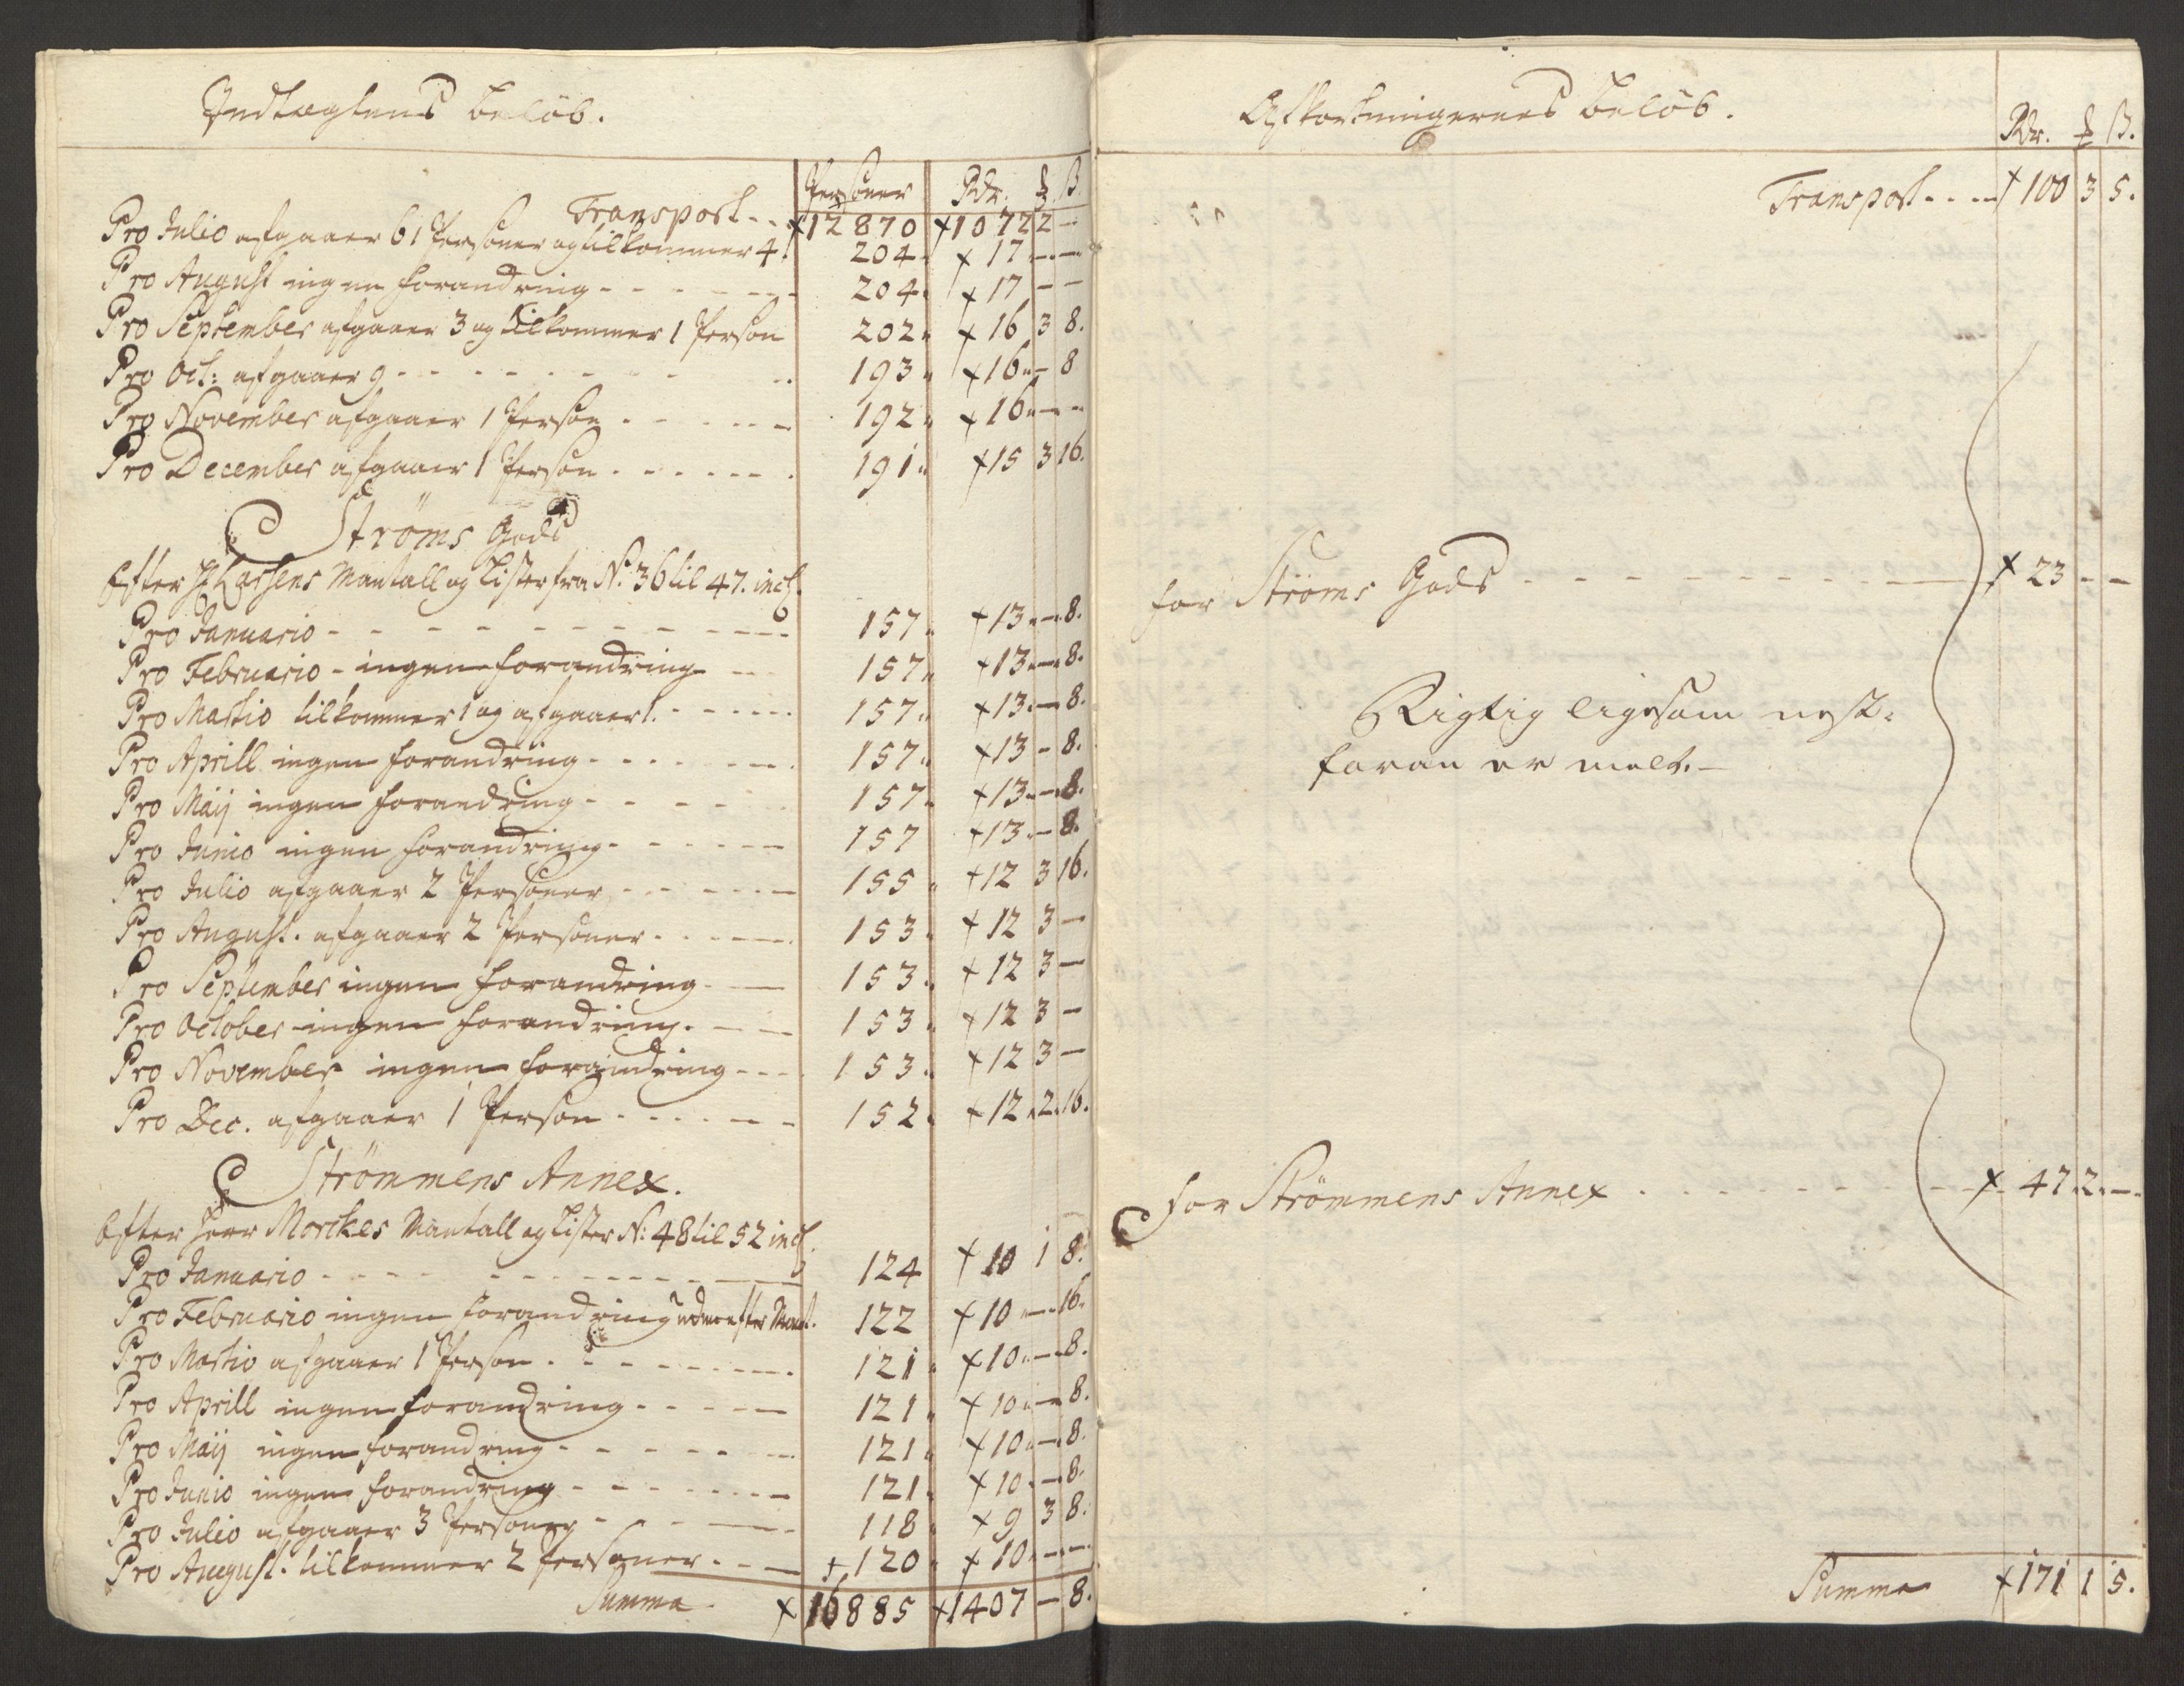 Indtægtens beløb.
Personer Rdr. ß
Transport - - 12870 1072 2 -
Pro Julio afgaaer 61 Personer og tilkommer 4. 204. 17 - -
Pro August ingen forandring - - - - 204. 17 - -
Pro September afgaaer 3 og tilkommer 1 Person 202. 16 3 8.
Pro Oct: afgaaer 9 - - - - 193. 16 - 8
Pro November afgaaer 1 Person - - - - 192. 16 - -
Pro December afgaaer 1 Person - - - - 191. 15 3 16.
Ströms Gods
Efter Hr Larsens Mantall og Lister fra No. 36 til 47. incl.
Pro Januario - - - - 157. 13 - 8.
Pro Februario - ingen forandring - - 157. 13 - 8.
Pro Martio tilkommer 1 og afgaaer 1. - - - 157. 13 - 8.
Pro Aprill ingen forandring - - - - 157. 13 - 8.
Pro Maij ingen forandring - - - - 157. 13 - 8.
Pro Junio ingen forandring - - - - 157 13 - 8.
Pro Julio afgaaer 2 Personer - - - - 155. 12 3 16.
Pro August. afgaaer 2 Personer - - - - 153. 12 3 -
Pro September ingen forandring - - 153. 12 3 -
Pro October ingen forandring. - - 153. 12 3 -
Pro November ingen forandring - - - 153. 12 3 -
Pro Dec. afgaaer 1 Person - - - - 152. 12 2 16.
Strömmens Annex.
Efter Herr Morckes Mantall og Lister N: 48 til 52 incl.
Pro Januario - - - - 124 10 1 8.
Pro Februario ingen forandring 122 10 - 16.
Pro Martio afgaaer 1 Person - - - - 121. 10 - 8.
Pro Aprill ingen forandring - - - - 121. 10 - 8.
Pro Maij ingen forandring - - - - 121. 10 - 8.
Pro Junio ingen forandring - - - - 121. 10 - 8.
Pro Julio afgaaer 3 Personer - - - - 118. 9 3 8.
Pro August. tilkommer 2 Personer - - - 120. 10 - -
Summa 16885 1407 - 8.
Afkortningernes beløb.
Rdr. ß.
Transport - - - 100 3 5.
for Ströms Gods - - - - 23 - -
Rigtig ligesom nest-
foran er melt. -
for Strömmens Annex - - - - 47 2. -
Summa 171 1 5.